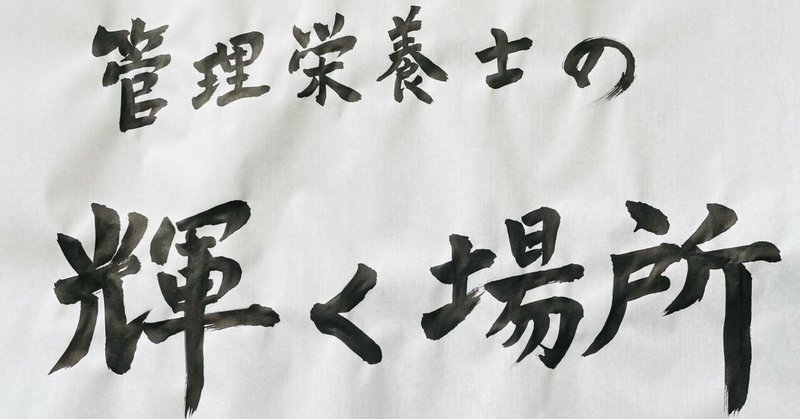 管理栄養士の
輝く場所